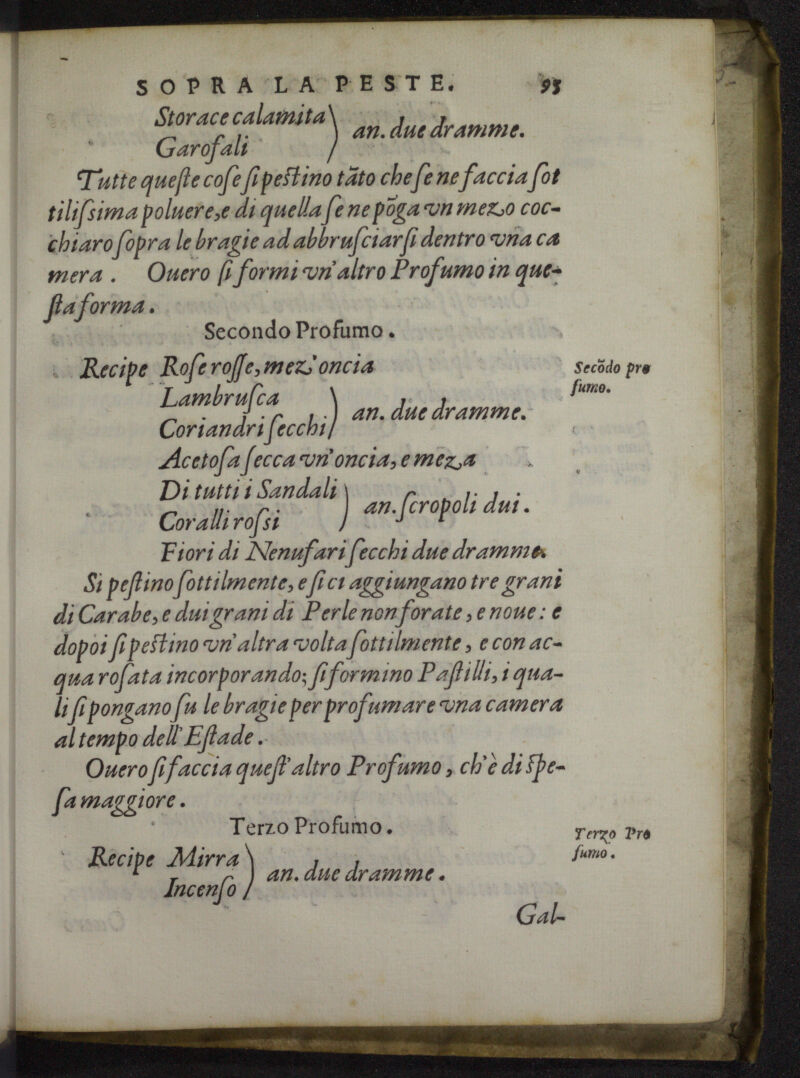 SOPRA LA PESTE. 95
Storace calamita
Garofali } an. due dramme.
Tutte queſte coſe ſi peſtino tãto che ſe ne faccia ſot
tiliſsima poluere,e di quella ſe ne põga vn mezo coc-
chiaro ſopra le bragie ad abbruſciarſi dentro vna ca
mera . Ouero ſi formi vn'altro Profumo in que-
ſta forma.
Secondo Profumo.
Recipe Roſe roſſe, mez'oncia
Lambruſca
Coriandri ſecchi } an. due dramme.
Acetoſa ſecca vn'oncia, e meza
Di tutti i Sandali
Coralli roſsi } an. ſcropoli dui.
Fiori di Nenufari ſecchi due dramme.
Si peſtino ſottilmente, e ſi ci aggiungano tre grani
di Carabe, e dui grani di Perle non forate, e noue: e
dopoi ſi peſtino vn'altra volta ſottilmente, e con ac-
qua roſata incorporando; ſi formino Paſtilli, i qua-
li ſi pongano ſu le bragie per profumare vna camera
al tempo dell'Eſtade.
Ouero ſi faccia queſt'altro Profumo, ch'è di ſpe-
ſa maggiore.
Terzo Profumo.
Recipe Mirra
Incenſo } an. due dramme.
Gal-
Secõdo pro
fumo.
Terzo Pro
fumo.